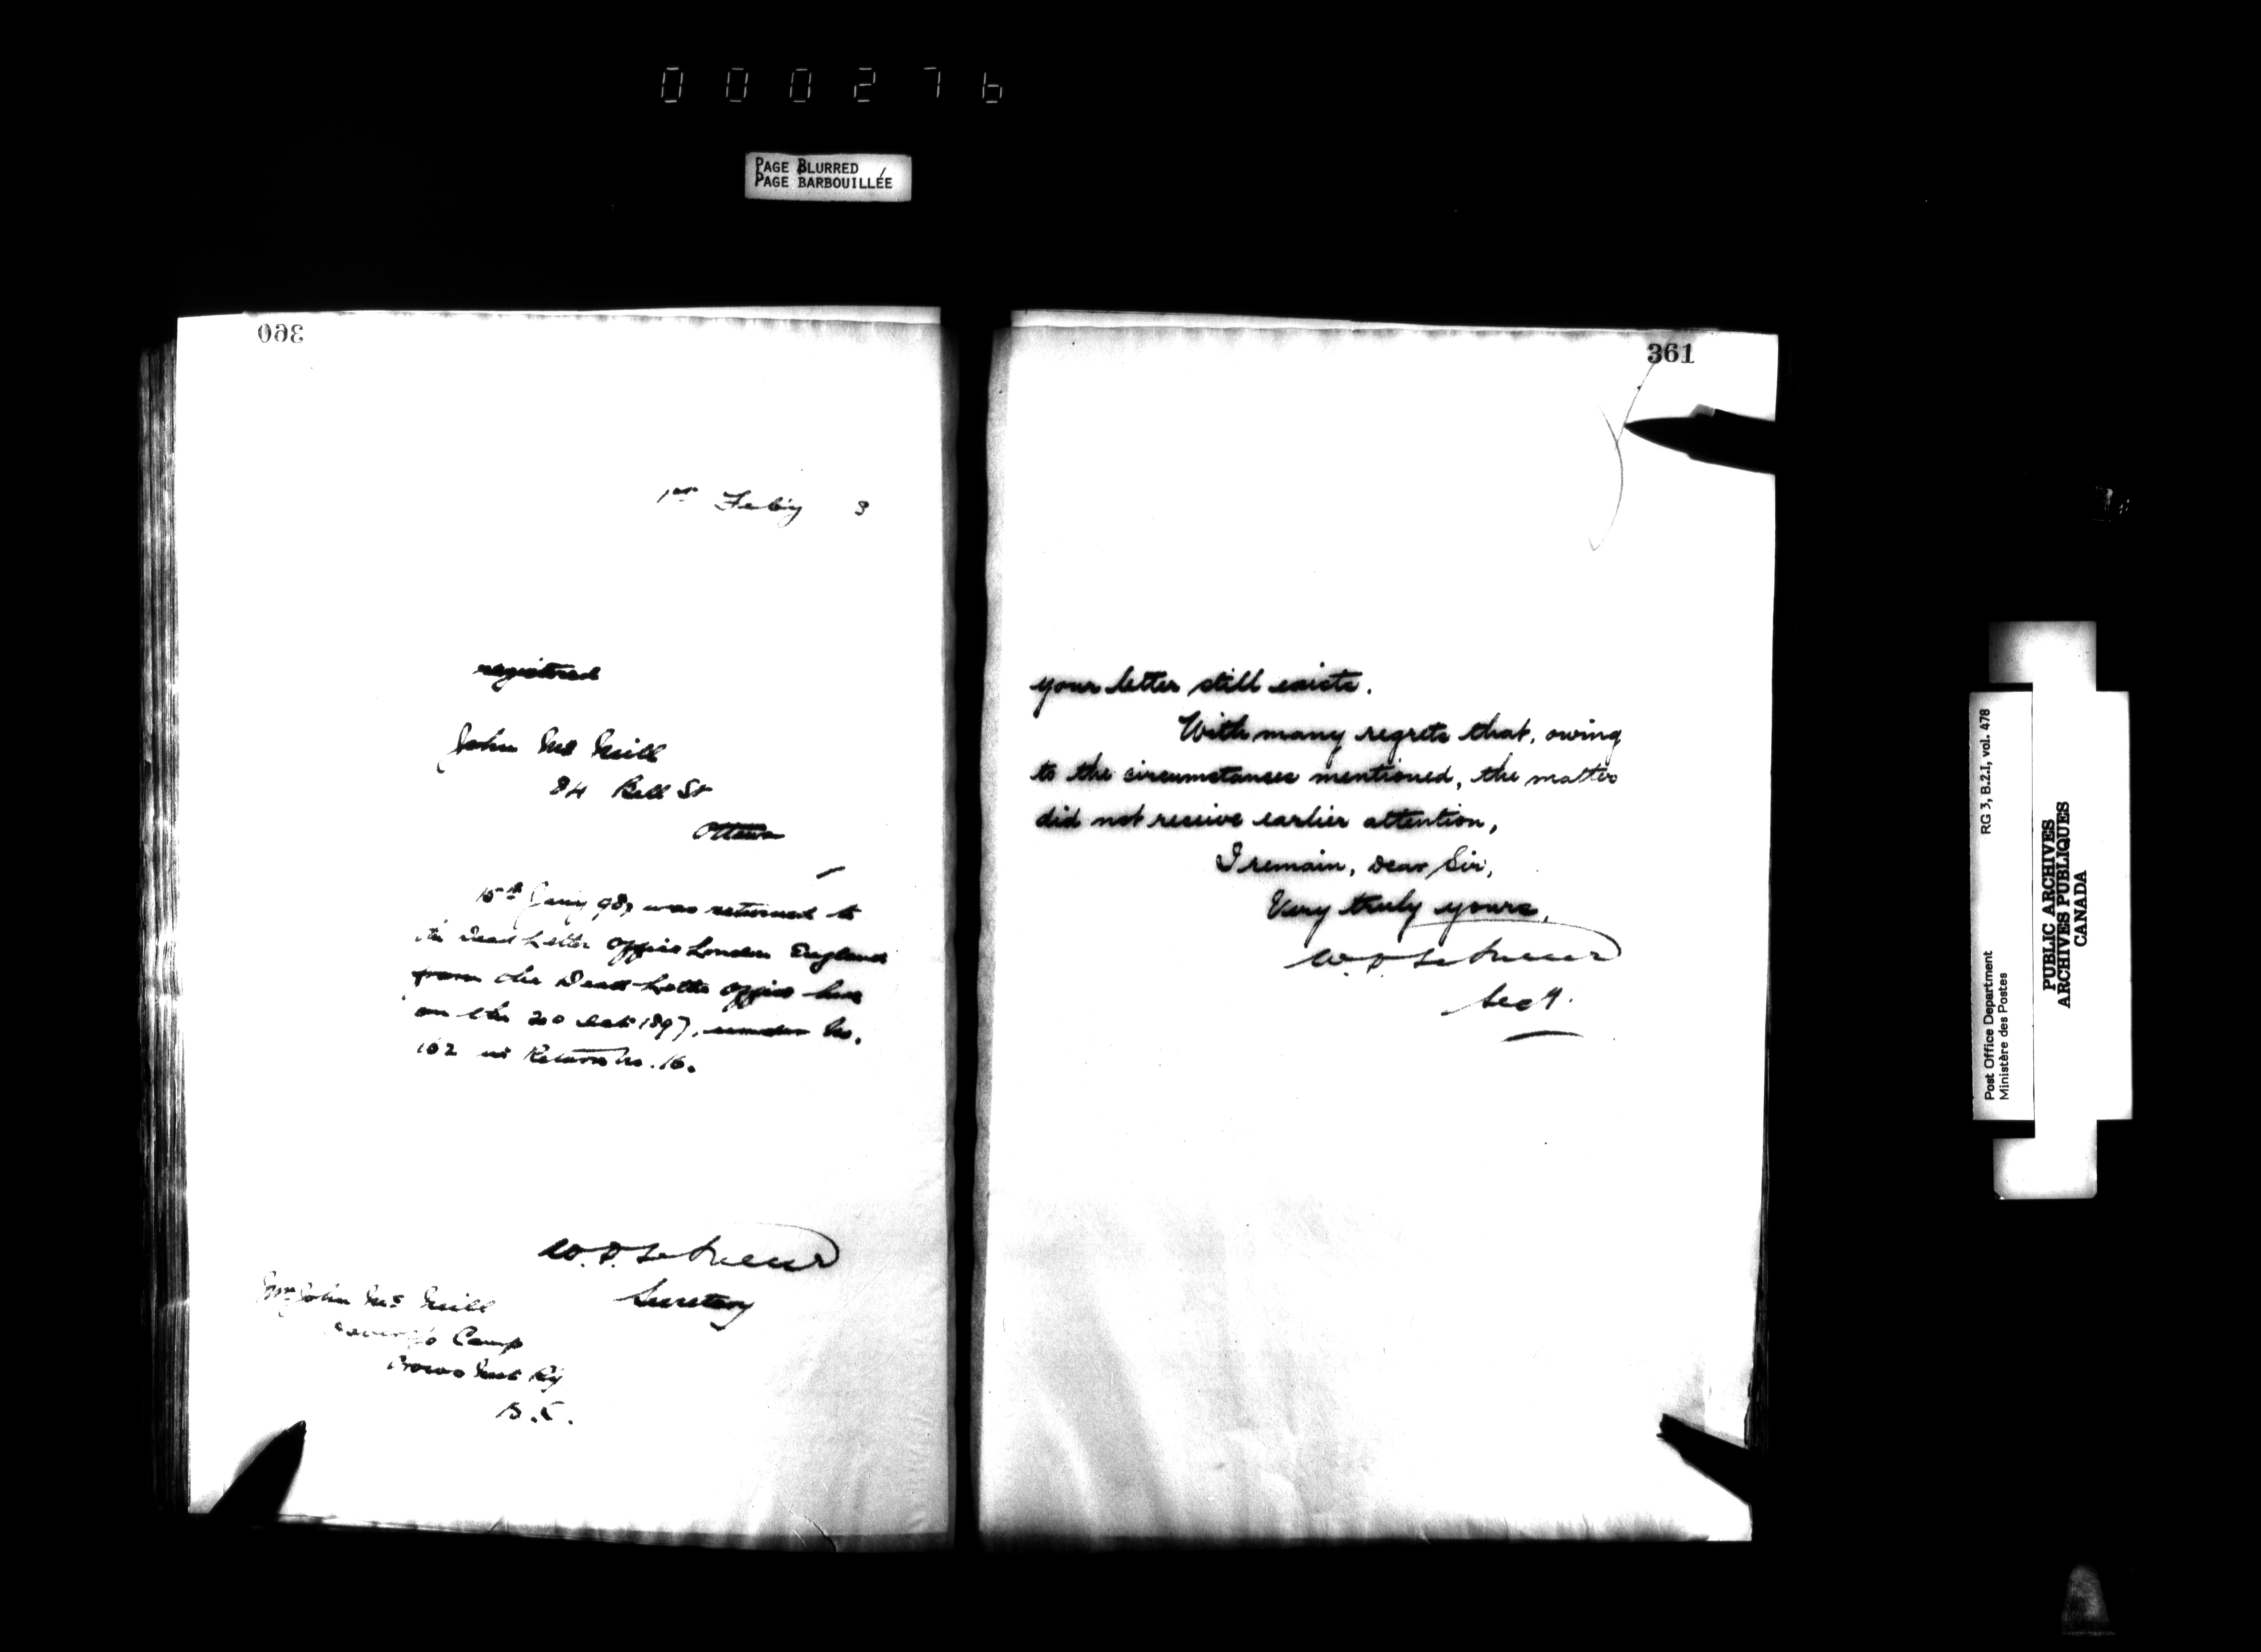 000276
PAGE BLURRED
PAGE BARBOUILLÉE
360
1st Feby 8
registered
John McNeill
84 Bell St
Ottawa
15th Jany 98, was returned to
the Dead Letter Office London England
from the Dead Letter Office here
on the 20 1897, under No.
162 in Return No. 16.
W. D. LeSueur
Secretary
Mr John McNeill
Camp
Crows Nest Ry
B.C.
361
your letter still exists.
With many regrets that, owing
to the circumstances mentioned, the matter
did not receive earlier attention,
I remain, Dear Sir,
Very truly yours,
W. D. LeSueur
Secy.
Post Office Department RG 3, B.2.I, vol. 478
Ministère des Postes
PUBLIC ARCHIVES
ARCHIVES PUBLIQUES
CANADA